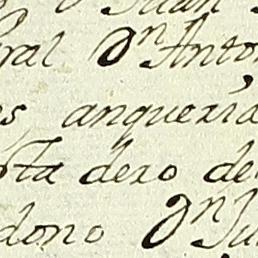 Juan
ral Dn Anto
s angueria
sta dexo de
dono Dn Ju